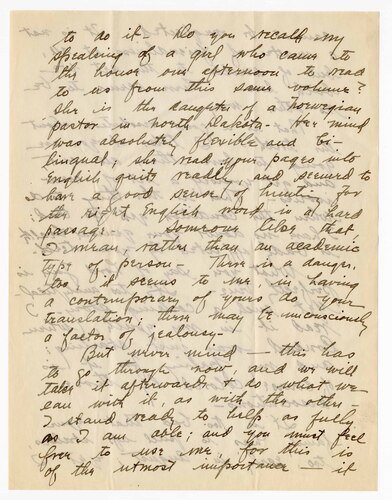 to do it - Do you recall my
speaking of a girl who came to
the house one afternoon to read
to us from this same volume?
She is the daughter of a Norwegian
pastor in North Dakota - Her mind
was absolutely flexible and bi-
lingual; she read your pages into
English quite readily and seemed to
have a good sense of hunting for
the right English word in a hard
passage. Someone like that,
I mean, rather than an academic
type of person - There is a danger,
too, it seems to me, in having
a contemporary of yours do your
translation; there may be unconsciously
a factor of jealousy -
But never mind - this has
to go through now, and we will
take it afterwards & do what we
can with it, as with the other -
I stand ready to help as fully
as I am able; and you must feel
free to use me, for this is
of the utmost importance - it